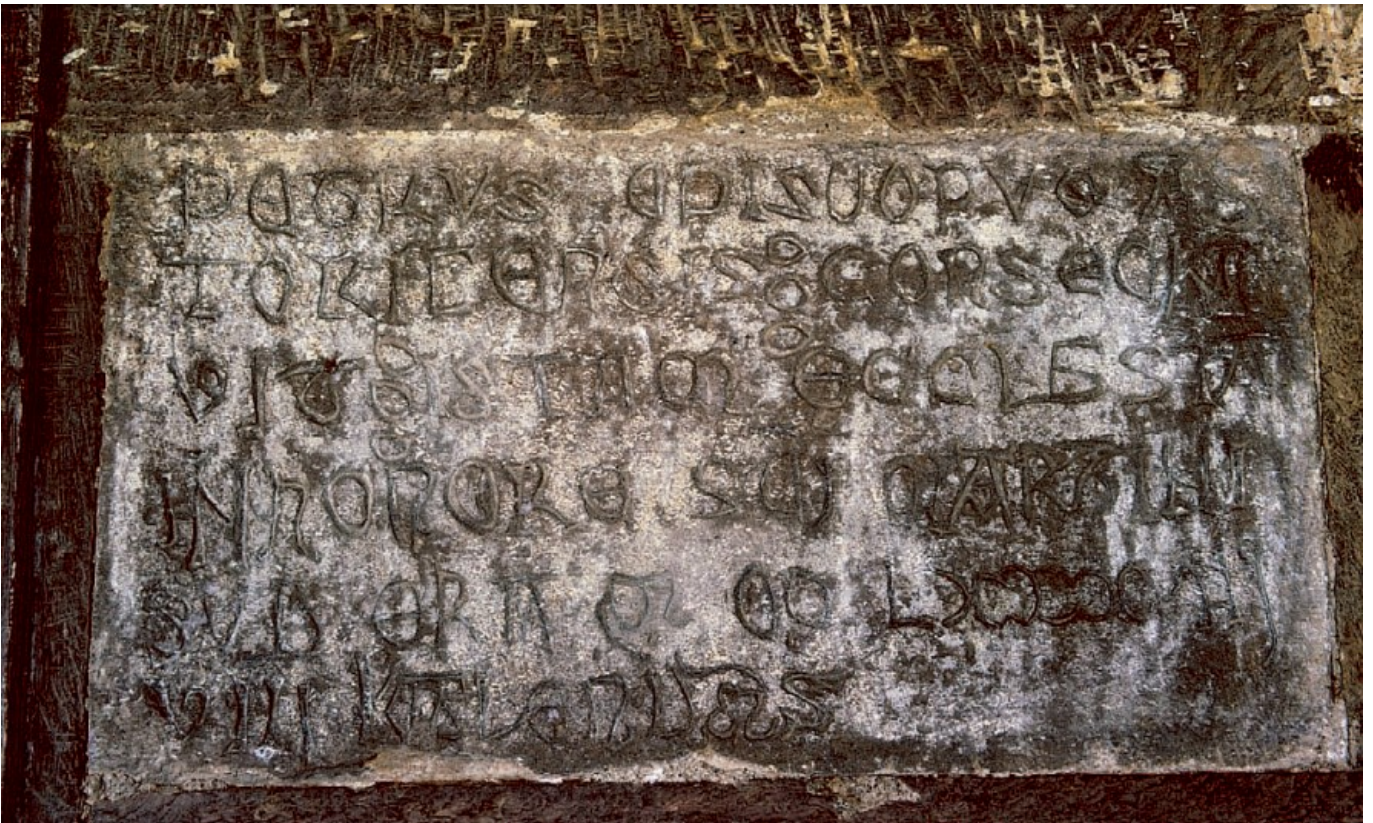 PETRVS EPISCOPVS AS
TORICENSIS CONSECRA
VIT ISTAM ECCLESIA
IN HONORE SCI MARTINI
SVB ERA
VIII KALENDAS